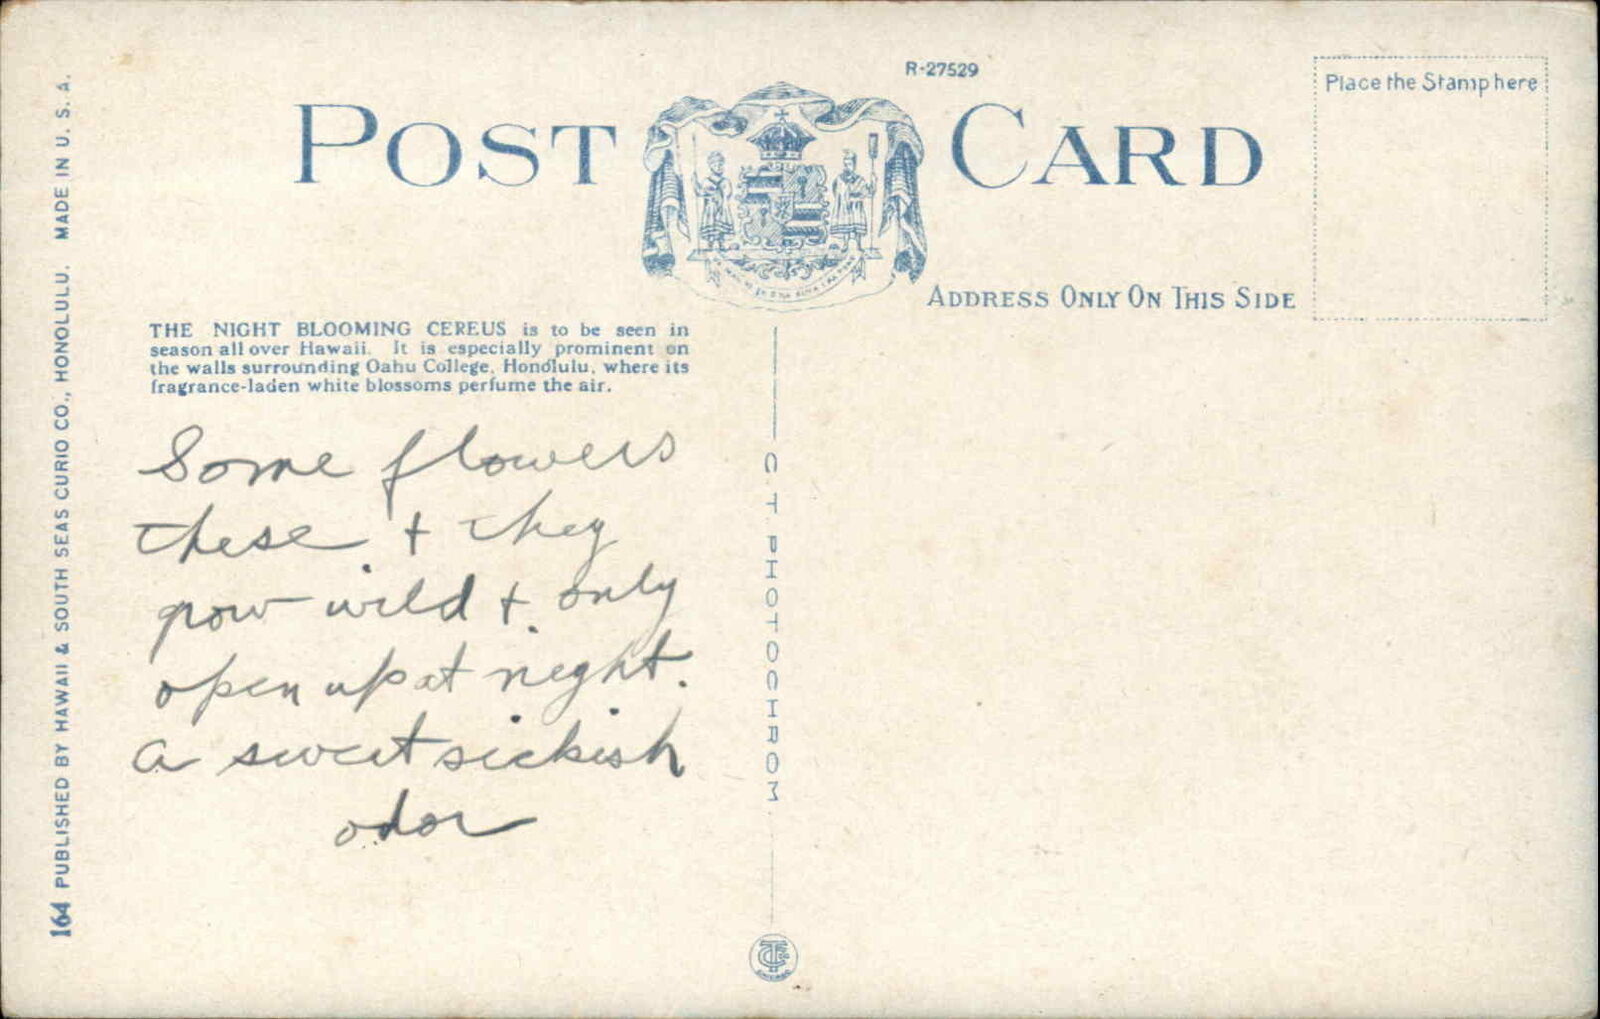 R-27529
Place the Stamp here
POST CARD
ADDRESS ONLY ON THIS SIDE
THE NIGHT BLOOMING CEREUS is to be seen in
season all over Hawaii. It is especially prominent on
the walls surrounding Oahu College, Honolulu, where its
fragrance-laden white blossoms perfume the air.
Some flowers
these + they
grow wild + only
open up at night.
a sweet sickish
odor
C. T. PHOTOCHROM
164 PUBLISHED BY HAWAII & SOUTH SEAS CURIO CO., HONOLULU. MADE IN U. S. A.
CHICAGO